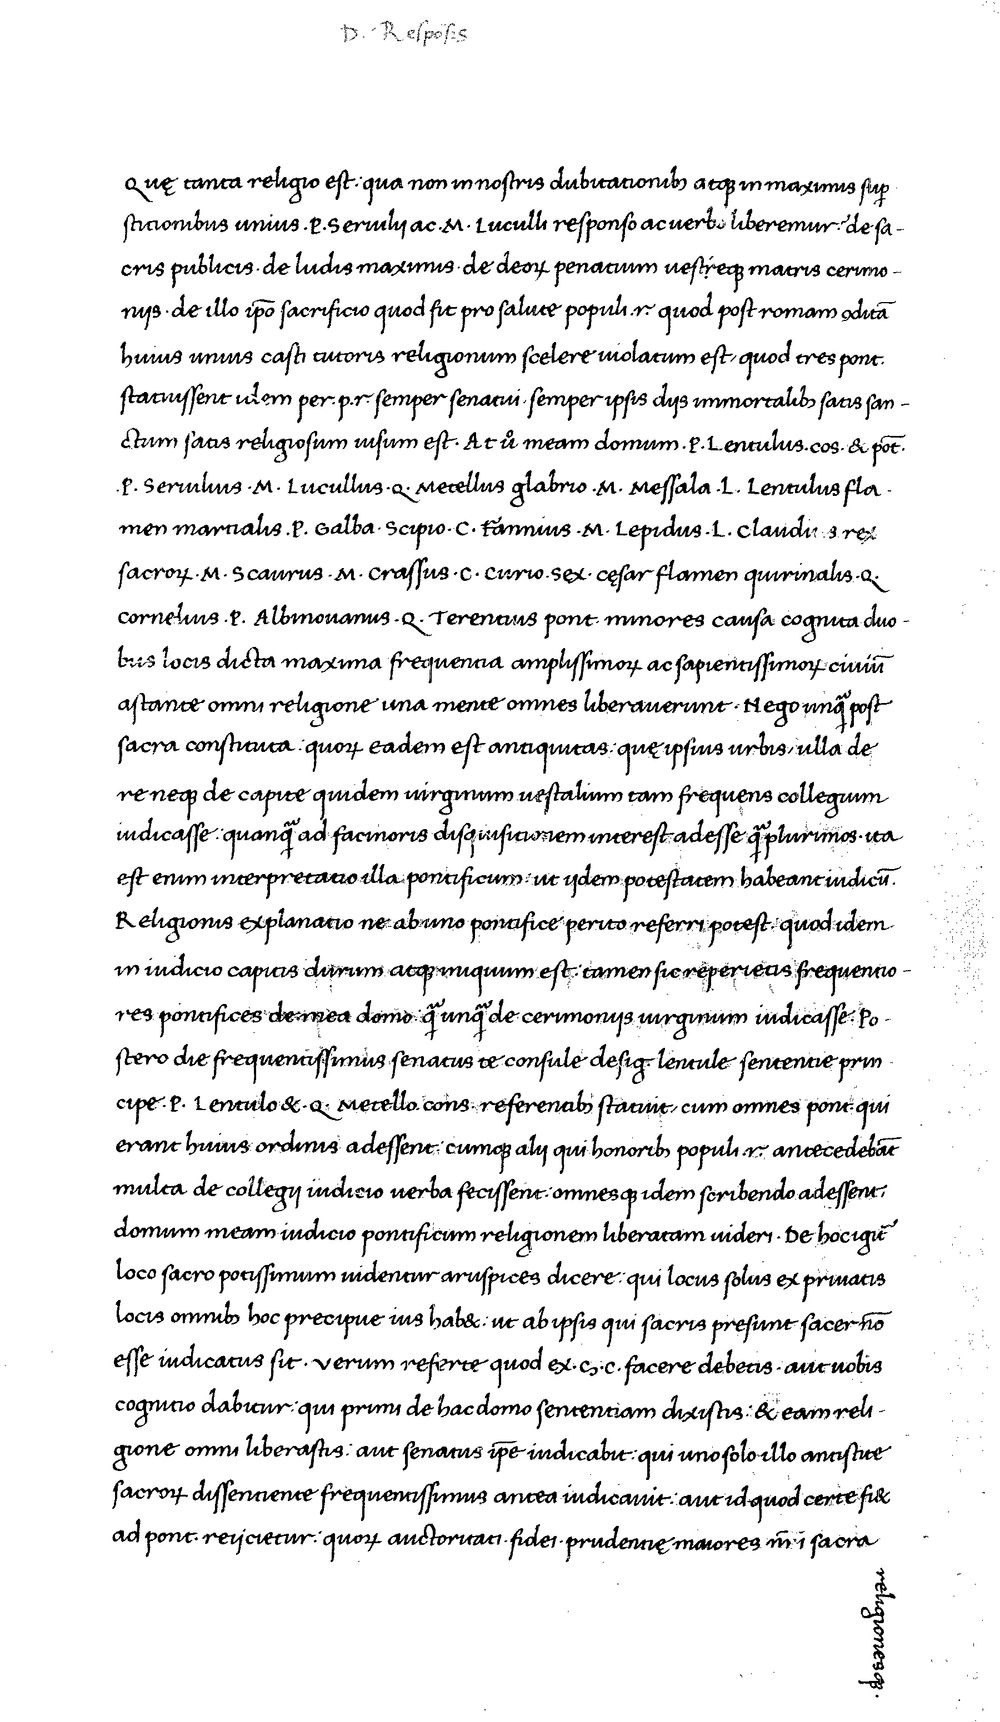 D. Respōsis
Quę tanta religio est: qua non in nostris dubitationibꝫ atqꝫ in maximis suꝑ
stitionibus unius .P. Seruilij ac .M. Luculli responso ac uerbo liberemur: de sa-
cris publicis· de ludis maximis· de deoꝝ penatium uestręqꝫ matris cerimo-
nijs· de illo ip̄o sacrificio quod fit pro salute populi .r. quod post romam ꝯditā
huius unius casti tutoris religionum scelere uiolatum est, quod tres pont.
statuissent idem per .p.r. semper senatui· semper ipsis dijs immortalibꝫ satis san-
ctum satis religiosum uisum est. At u̓o meam domum .P. Lentulus .cos. & pōt.
.P. Seruilius .M. Lucullus .Q. Metellus glabrio .M. Messala .L. Lentulus fla-
men martialis .P. Galba· Scipio· C. Fannius .M. Lepidus .L. Claudius rex
sacroꝝ .M. Scaurus .M. Crassus .C. Curio .Sex. Cęsar flamen quirinalis .Q.
Cornelius .P. Albinouanus .Q. Terentius pont. minores causa cognita duo-
bus locis dicta maxima frequentia amplissimoꝝ ac sapientissimoꝝ ciuiū
astante omni religione una mente omnes liberauerunt. Nego unqᷓ post
sacra constituta: quoꝝ eadem est antiquitas: quę ipsius urbis, ulla de
re neqꝫ de capite quidem uirginum uestalium tam frequens collegium
iudicasse: quanqᷓ ad facinoris disquisitionem interest adesse qᷓ plurimos· ita
est enim interpretatio illa pontificum: ut ijdem potestatem habeant iudicū.
Religionis explanatio ne ab uno pontifice perito referri potest: quod idem
in iudicio capitis durum atqꝫ iniquum est: tamen sic reperietis frequentio-
res pontifices de mea domo: qᷓ unqᷓ de cerimonijs uirginum iudicasse. Po-
stero die frequentissimus senatus te consule desig. lentule sententie prin
cipe .P. Lentulo & .Q. Metello cons. referentibꝫ statuit, cum omnes pont. qui
erant huius ordinis adessent: cumqꝫ alij qui honoribꝫ populi .r. antecedebāt
multa de collegij iudicio uerba fecissent: omnesqꝫ idem scribendo adessent:
domum meam iudicio pontificum religionem liberatam uideri. De hoc igit᷑
loco sacro potissimum uidentur aruspices dicere: qui locus solus ex priuatis
locis omnibꝫ hoc precipue ius hab&: ut ab ipsis qui sacris presunt sacer nō
esse iudicatus sit. Verum referte quod ex .S.C. facere debetis. aut uobis
cognitio dabitur: qui primi de hac domo sententiam dixistis: & eam reli-
gione omni liberastis: aut senatus ip̄e iudicabit: qui uno solo illo antistite
sacroꝝ dissentiente frequentissimus antea iudicauit: aut id quod certe fi&
ad pont. reijcietur: quoꝝ auctoritati· fidei· prudentię maiores nr̄i sacra
religionesqꝫ.